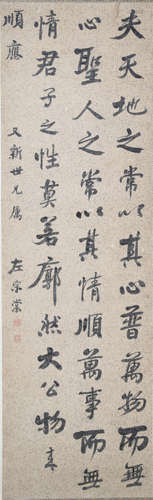 夫天地之常以其心普萬物而無
心聖人之常以其情順萬事而無
情君子之性莫若廓然大公物来
順應
又新世兄属
左宗棠